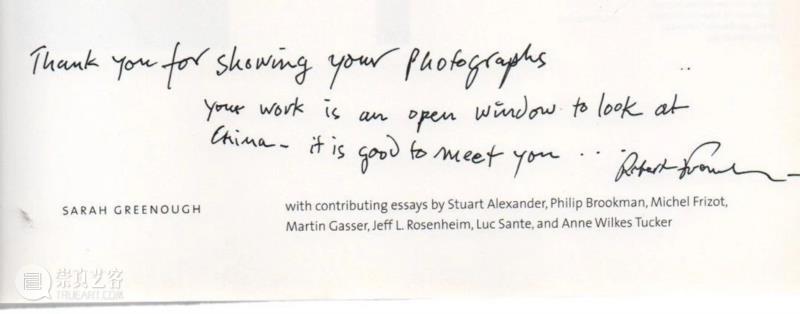 Thank you for showing your photographs
your work is an open window to look at
China - it is good to meet you ..
Robert Frank
SARAH GREENOUGH
with contributing essays by Stuart Alexander, Philip Brookman, Michel Frizot,
Martin Gasser, Jeff L. Rosenheim, Luc Sante, and Anne Wilkes Tucker
崇真艺客
TRUEART.COM